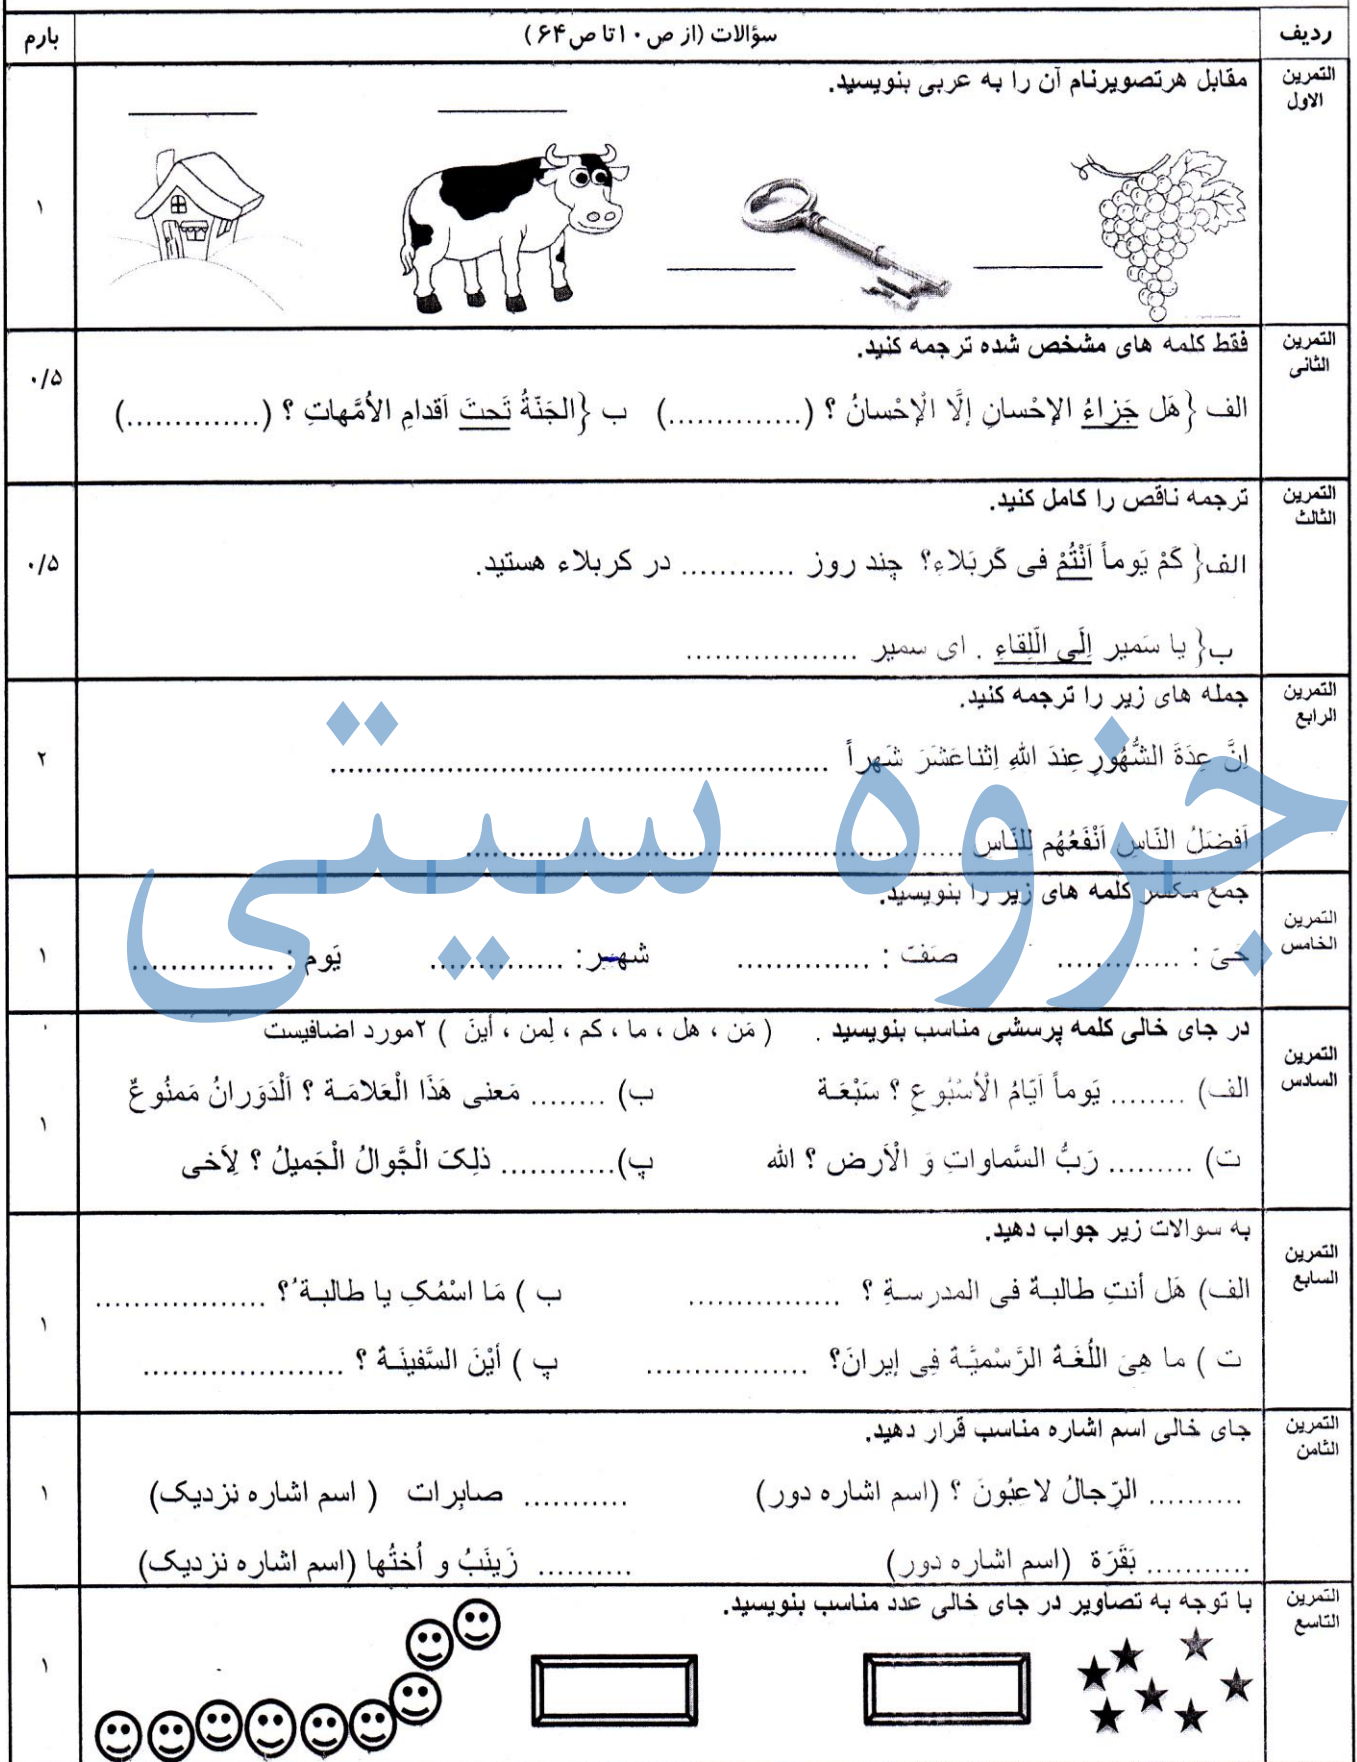 ردیف سؤالات (از ص۱۰ تا ص۶۴) بارم
التمرین الاول
مقابل هرتصویرنام آن را به عربی بنویسید.
۱
التمرین الثانی
فقط کلمه های مشخص شده ترجمه کنید.
۰/۵
الف} هَل جَزاءُ الإحْسانِ إلَّا الْإحْسانُ ؟ (..............) ب} الجَنَّةُ تَحتَ اَقدامِ الاُمَّهاتِ ؟ (..............)
التمرین الثالث
ترجمه ناقص را کامل کنید.
۰/۵
الف} کَمْ یَوماً اَنْتُمْ فی کَربَلاءِ؟ چند روز ............ در کربلاء هستید.
ب} یا سَمیر اِلَی الِّلقاءِ . ای سمیر ..................
التمرین الرابع
جمله های زیر را ترجمه کنید.
۲
اِنَّ عِدَةَ الشُّهُورِ عِندَ اللهِ اِثناعَشَرَ شَهراً ....................................................
اَفضَلُ النّاسِ اَنْفَعُهُم لِلنّاس ....................................................
التمرین الخامس
جمع مکسر کلمه های زیر را بنویسید.
۱
حَیّ : ............. صَفّ : .............. شهر: .............. یَوم : ...............
جزوه سیتی
التمرین السادس
در جای خالی کلمه پرسشی مناسب بنویسید . ( مَن ، هل ، ما ، کم ، لِمن ، أینَ ) ۲مورد اضافیست
۱
الف) ........ یَوماً اَیّامُ الْاُسْبُوعِ ؟ سَبْعَة ب) ........ مَعنی هَذَا الْعَلامَة ؟ اَلْدَوَرانُ مَمنُوعٌ
ت) ......... رَبُّ السَّماواتِ وَ الْاَرض ؟ الله پ)............ ذلِکَ الْجَّوالُ الْجَمیلُ ؟ لِاَخی
التمرین السابع
به سوالات زیر جواب دهید.
۱
الف) هَل أنتِ طالبةٌ فی المدرسةِ ؟ ................ ب ) مَا اسْمُکِ یا طالبةُ ؟ ..................
ت ) ما هِیَ اللُغَةُ الرَّسْمیَّةُ فِی إیرانَ؟ ................. پ ) أیْنَ السَّفینَةُ ؟ .....................
التمرین الثامن
جای خالی اسم اشاره مناسب قرار دهید.
۱
.......... الرِّجالُ لاعِبُونَ ؟ (اسم اشاره دور) ........... صابِرات ( اسم اشاره نزدیک)
........... بَقَرَة (اسم اشاره دور) .......... زَینَبُ و اُختُها (اسم اشاره نزدیک)
التمرین التاسع
با توجه به تصاویر در جای خالی عدد مناسب بنویسید.
۱